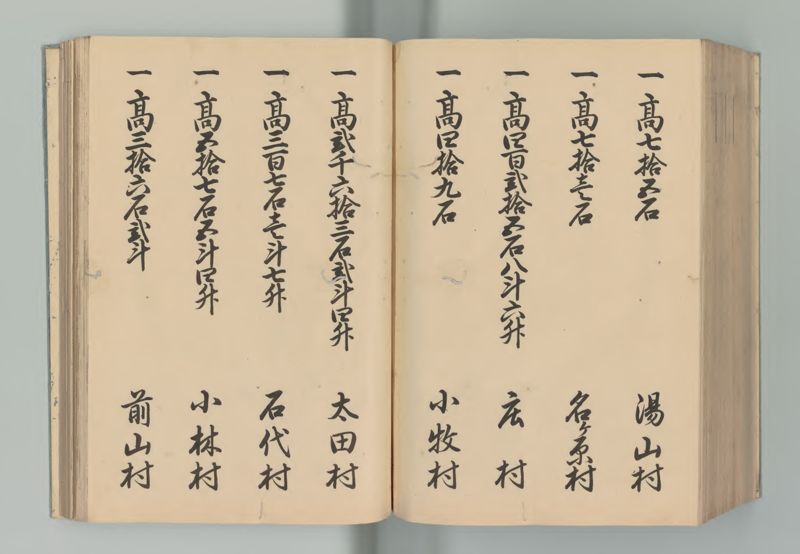 一 髙七拾五石 湯山村
一 髙七拾壱石 名ヶ原村
一 髙四百弐拾五石八斗六升 庄村
一 髙四拾九石 小牧村
一 髙弐千六拾三石弐斗四升 太田村
一 髙三百七石壱斗七升 石代村
一 髙五拾七石五斗四升 小林村
一 髙三拾六石弐斗 前山村